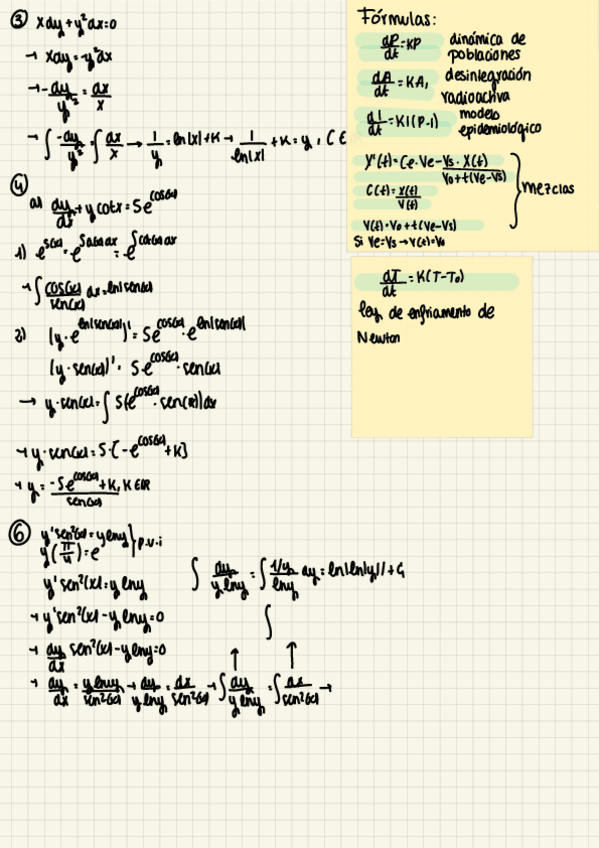 ③ xdy+y²dx=0
→ xdy=-y²dx
→ -dy/y² = dx/x
→ ∫ -dy/y² = ∫ dx/x → 1/y = ln|x|+K → 1/ln|x| + K = y, C E
④
a) dy/dx + y cotx = 5e^cos(x)
∫ cos(x)/sen(x) dx = ln|sen(x)|
2) (y·e^ln|sen(x)|)' = 5e^cos(x)·e^ln|sen(x)|
(y·sen(x))' = 5e^cos(x)·sen(x)
→ y·sen(x) = ∫ 5(e^cos(x)·sen(x))dx
→ y·sen(x) = 5·[-e^cos(x)+K]
→ y = -5e^cos(x)+K/sen(x), K∈IR
⑥ y'sen²(x) = y lny
y(π/4) = e } p.v.i
y'sen²(x) = y lny
→ y'sen²(x) - y lny = 0
→ dy/dx sen²(x) - y lny = 0
→ dy/dx = y lny/sen²(x) → dy/y lny = dx/sen²(x) → ∫ dy/y lny = ∫ dx/sen²(x) →
∫ dy/y lny = ∫ 1/y/lny dy = ln|ln|y|| + C₁
∫
Fórmulas:
dP/dt = KP dinámica de
poblaciones
dA/dt = KA, desintegración
radioactiva
dI/dt = KI(P-I) modelo
epidemiológico
X'(t) = Ce·Ve - Vs·X(t)/V0+t(Ve-Vs)
C(t) = X(t)/V(t)
mezclas
V(t) = V0+t(Ve-Vs)
Si Ve=Vs → V(t)=V0
dT/dt = K(T-T0)
ley de enfriamento de
Newton